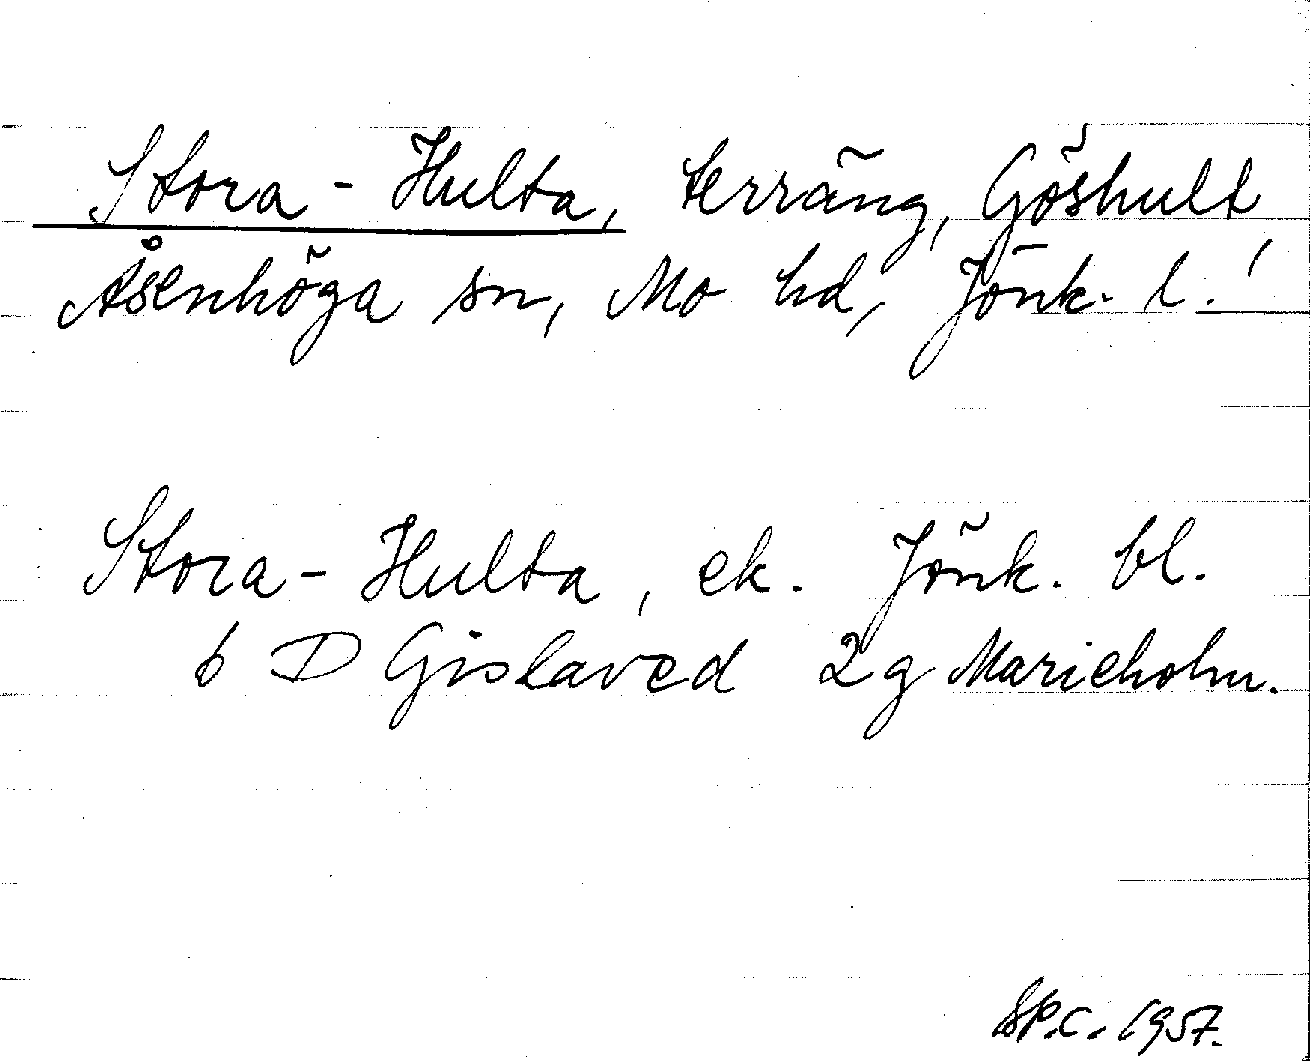 Stora-Hulta, terräng, Göshult
Åsenhöga sn, Mo hd, Jönk. l.!
Stora-Hulta, ek. Jönk. bl.
6 D Gislaved 2g Marieholm.
1957.